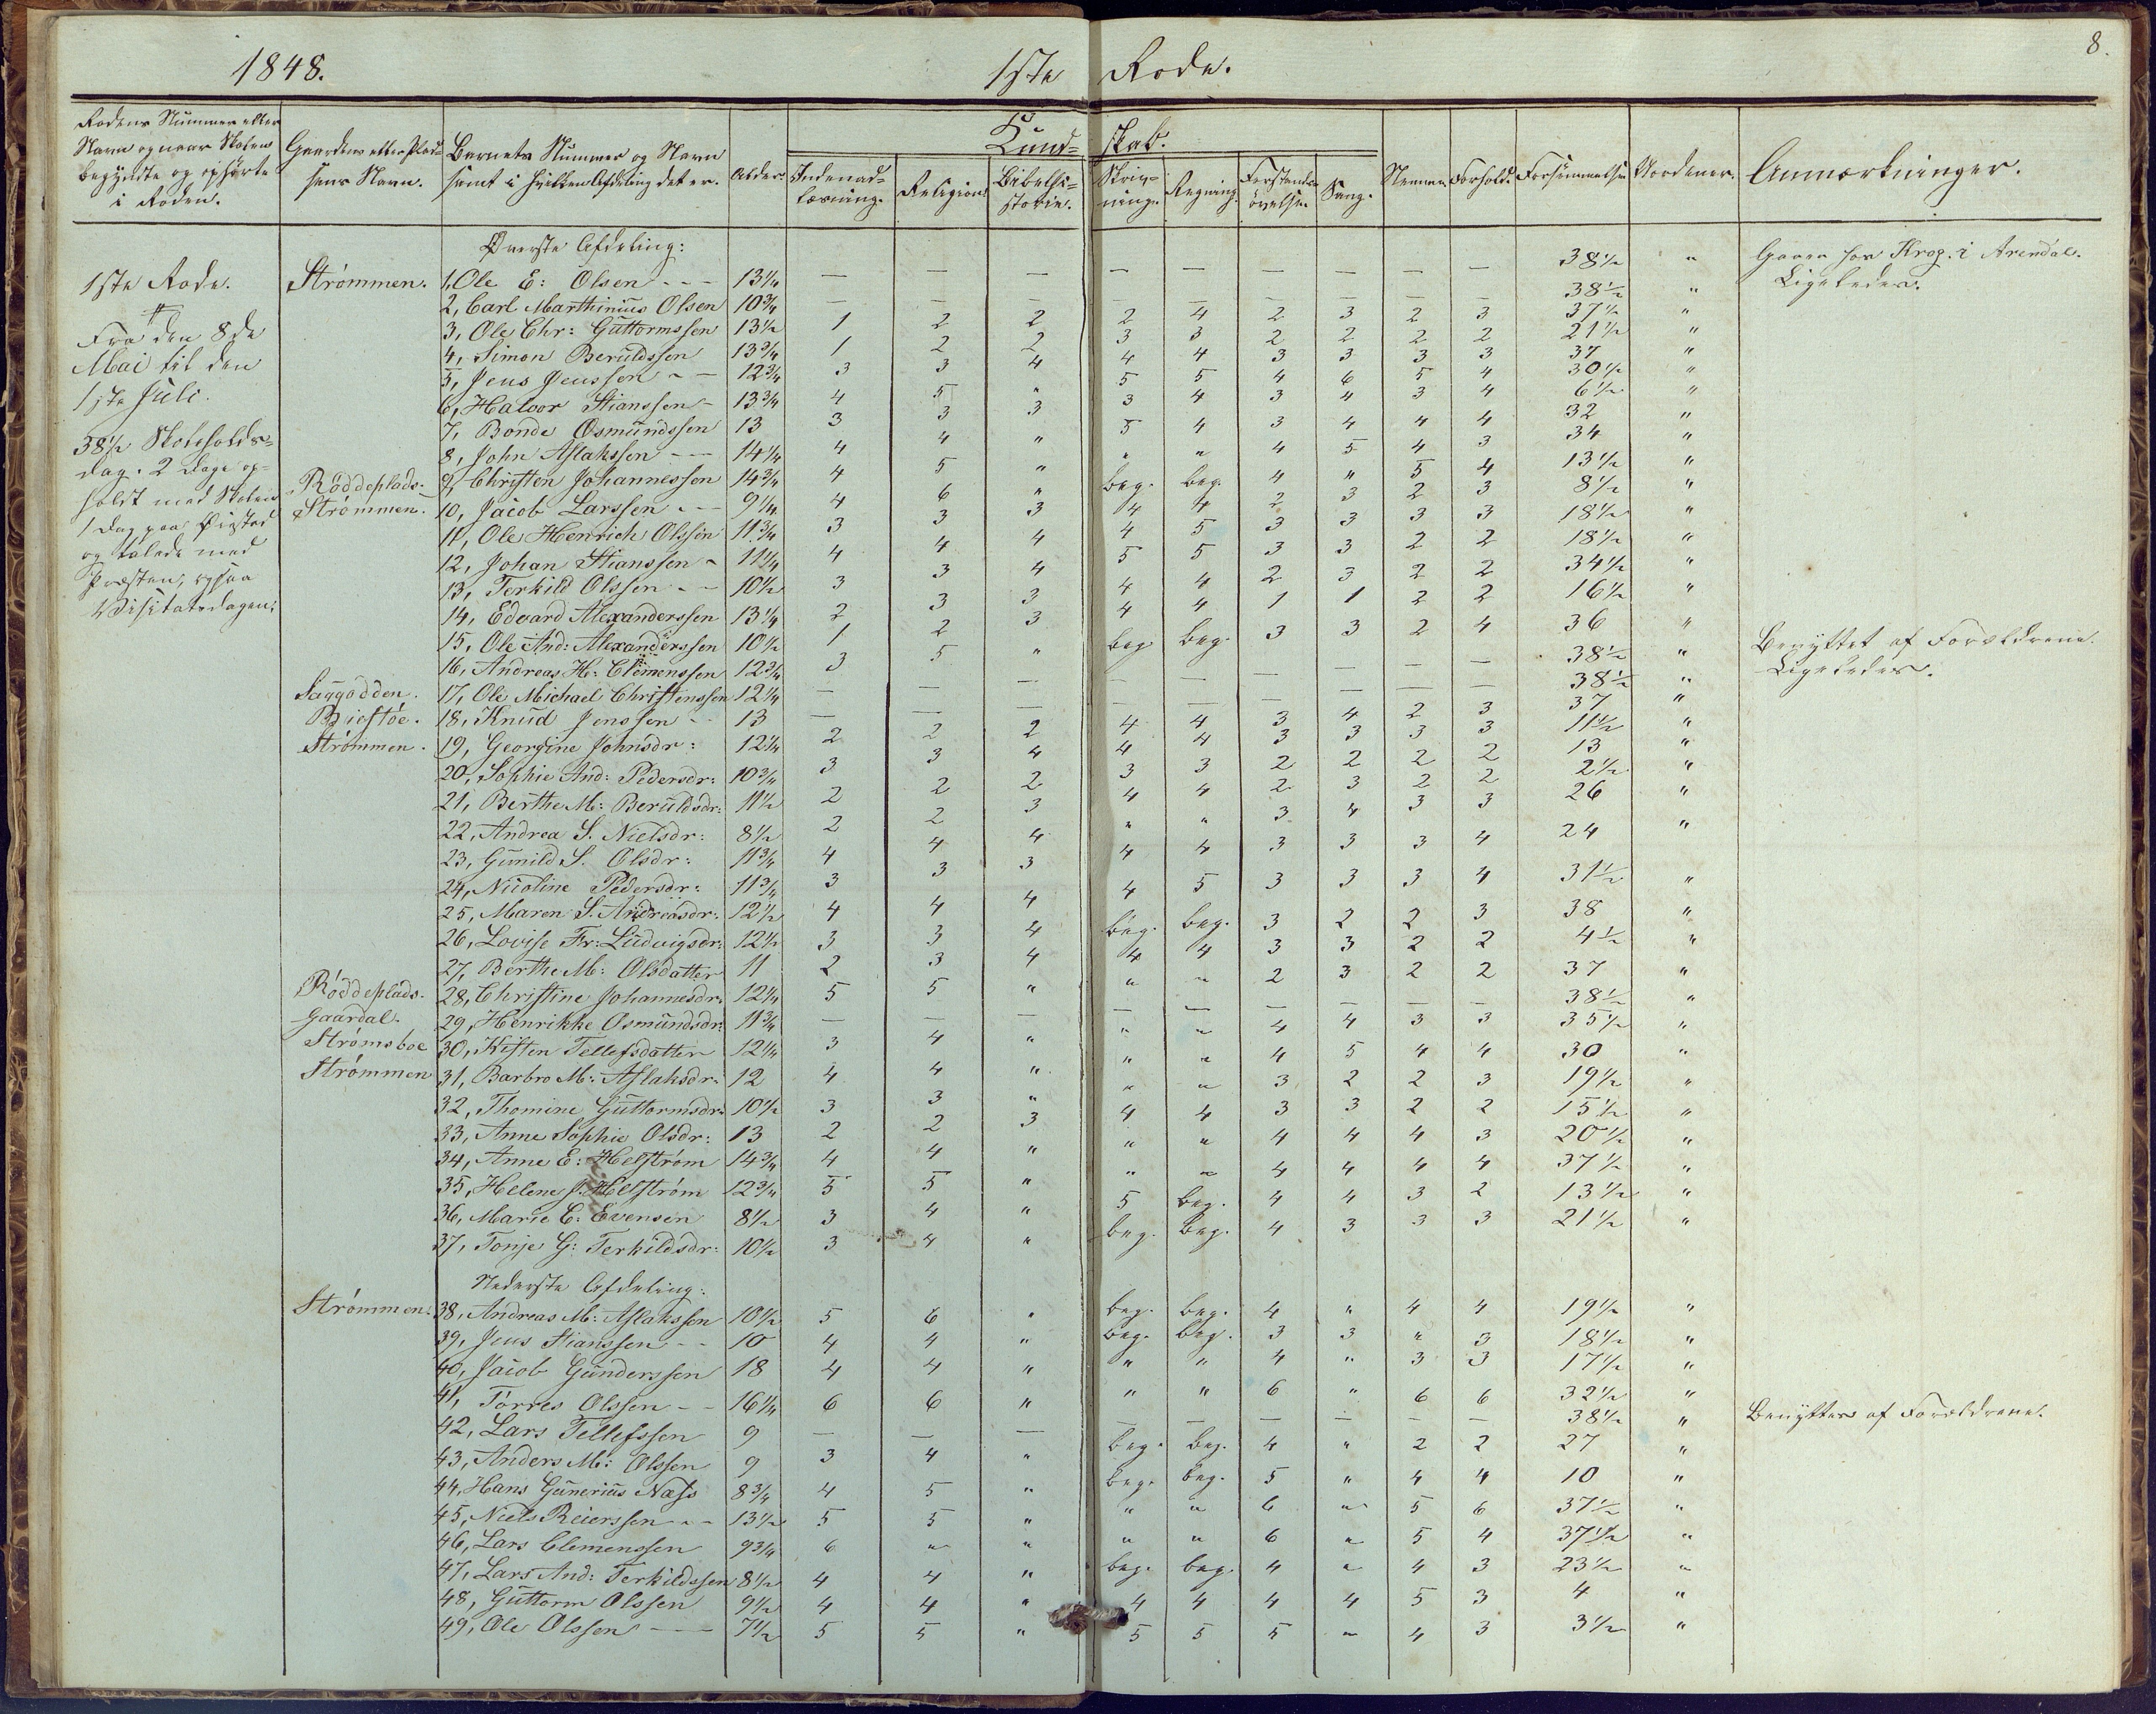 1848. 1ste Rode. 8.
Rodens Nummer eller Navn og naar Skolen begyndte og ophørte i Roden. | Gaardens eller Pladsens Navn. | Barnets Nummer og Navn samt i hvilken Afdeling det er. | Alder. | Kundskab. | Indenadlæsning. | Religion. | Bibelhistorie. | Skrivning. | Regning. | Forstandsøvelse. | Sang. | Nemme. | Forhold. | Forsømmelse. | Anmærkninger.
1ste Rode.
Fra den 8de
Mai til den
1ste Juli.
38½ Skoleholds-
dag. 2 Dage op-
holdt med Skolen
1 Dag paa Øiestad
og talede med
Præsten, ogsaa
Visitatsdagen.
Øverste Afdeling:
Strømmen. 1, Ole E: Olsen -- 13¼ — — — — — — — — — 38½ " Garen for Krog. i Arendal.
2, Carl Marthinius Olsen 10¾ — — — — — — — — — 38½ " Ligeledes.
3, Ole Chr: Guttormssen 13½ 1 2 2 2 4 2 3 2 3 37½ "
4, Simon Beruldssen 13¾ 1 2 2 3 3 2 2 2 2 21½ "
5, Jens Jenssen - - 12¾ 3 3 4 4 4 3 3 3 3 37 "
6, Halvor Stianssen - 13¾ 4 5 " 5 5 4 6 5 4 30½ "
7, Bonde Osmundssen 13 3 3 3 3 4 3 4 3 4 6½ "
8, John Aslakssen -- 14¼ 4 4 " 5 4 3 4 4 4 32 "
Røddeplads. 9, Christen Johannessen 14¾ 4 5 " " " 4 5 4 3 34 "
Strømmen. 10, Jacob Larssen -- 9¼ 4 6 " beg. beg. 4 " 5 4 13½ "
11, Ole Henrich Olssen 11¾ 3 3 3 4 4 2 3 2 3 8½ "
12, Johan Stianssen - 11¼ 4 4 4 4 5 3 3 3 3 18½ "
13, Terkild Olssen -- 10½ 3 3 4 5 5 3 3 2 2 18½ "
14, Edvard Alexanderssen 13¼ 2 3 3 4 4 2 3 2 2 34½ "
15, Ole And: Alexanderssen 10½ 1 2 3 4 4 1 1 2 2 16½ "
16, Andreas H. Clemenssen 12¾ 3 5 " beg. beg. 3 3 2 4 36 "
Saggodden. 17, Ole Michael Christenssen 12¼ — — — — — — — — — 38½ " Benyttet af Forældrene.
18, Knud Jenssen -- 13 — — — — — — — — — 38½ " Ligeledes.
Strømmen. 19, Georgine Johnsdr: 12¼ 2 2 2 4 4 3 4 2 3 37 "
20, Sophie And: Pedersdr: 10¾ 3 3 4 4 4 3 3 3 3 11½ "
21, Berthe M: Beruldsdr: 11½ 2 2 2 3 3 2 2 2 2 13 "
22, Andrea S. Nielsdr: 8½ 2 2 3 4 4 2 3 2 2 2½ "
23, Gunild S. Olsdr: 11¾ 4 4 4 " " 3 4 3 3 26 "
24, Nicoline Pedersdr: 11¾ 3 3 3 4 4 3 3 3 4 24 "
25, Maren S. Andreasdr: 12½ 4 4 4 4 5 3 3 3 4 31½ "
26, Lovise Fr: Ludvigsdr: 12½ 3 3 4 beg. beg. 3 2 2 3 38 "
27, Berthe M: Olsdatter 11 2 3 4 4 4 3 3 2 2 4½ "
Røddeplads. 28, Christine Johannesdr: 12¼ 5 5 " " " 2 3 2 2 37 "
Gaardal. 29, Henrikke Osmundsdr: 11¾ — — — — — — — — — 38½ "
Strømsboe 30, Kisten Tellefsdatter 12¼ 3 4 " " " 4 4 3 3 35½ "
Strømmen 31, Barbro M: Aslaksdr: 12 4 4 " " " 4 5 4 4 30 "
32, Thomine Guttormsdr: 10½ 3 3 " " " 3 2 2 3 19½ "
33, Anne Sophie Olsdr: 13 2 2 3 4 4 3 3 2 2 15½ "
34, Anne E: Helstrøm 14¾ 4 4 " " " 4 4 4 3 20½ "
35, Helene J. Helstrøm 12¾ 5 5 " " " 4 4 4 4 37½ "
36, Marie C: Evensen 8½ 3 4 " 5 beg. 4 4 3 2 13½ "
37, Tonje G: Terkildsdr: 10½ 3 4 " beg. beg. 4 3 3 3 21½ "
Nederste Afdeling:
Strømmen. 38, Andreas M: Aslakssen 10½ 5 6 " beg. beg. 4 " 4 4 19½ "
39, Jens Stianssen -- 10 4 4 " beg. beg. 3 3 " 3 18½ "
40, Jacob Gunderssen 18 4 4 " " " 4 " 3 3 17½ "
41, Tørres Olssen -- 16¼ 6 6 " " " 6 " 6 6 32½ "
42, Lars Tellefssen 9 — — — — — — — — — 38½ " Benyttes af Forældrene.
43, Anders M: Olssen 9 3 4 " beg. beg. 4 " 2 2 27 "
44, Hans Gunerius Næss 8¾ 4 5 " beg. beg. 5 " 4 4 10 "
45, Niels Reierssen -- 13½ 5 5 " " " 6 " 5 6 37½ "
46, Lars Clemenssen 9¾ 6 " " " " 6 " 5 4 37½ "
47, Lars And: Terkildssen 8½ 4 4 " beg. beg. 4 " 4 3 23½ "
48, Guttorm Olssen 9½ 4 4 " 4 4 4 4 5 3 4 "
49, Ole Olssen -- 7½ 5 5 " 5 5 5 " 4 3 3½ "